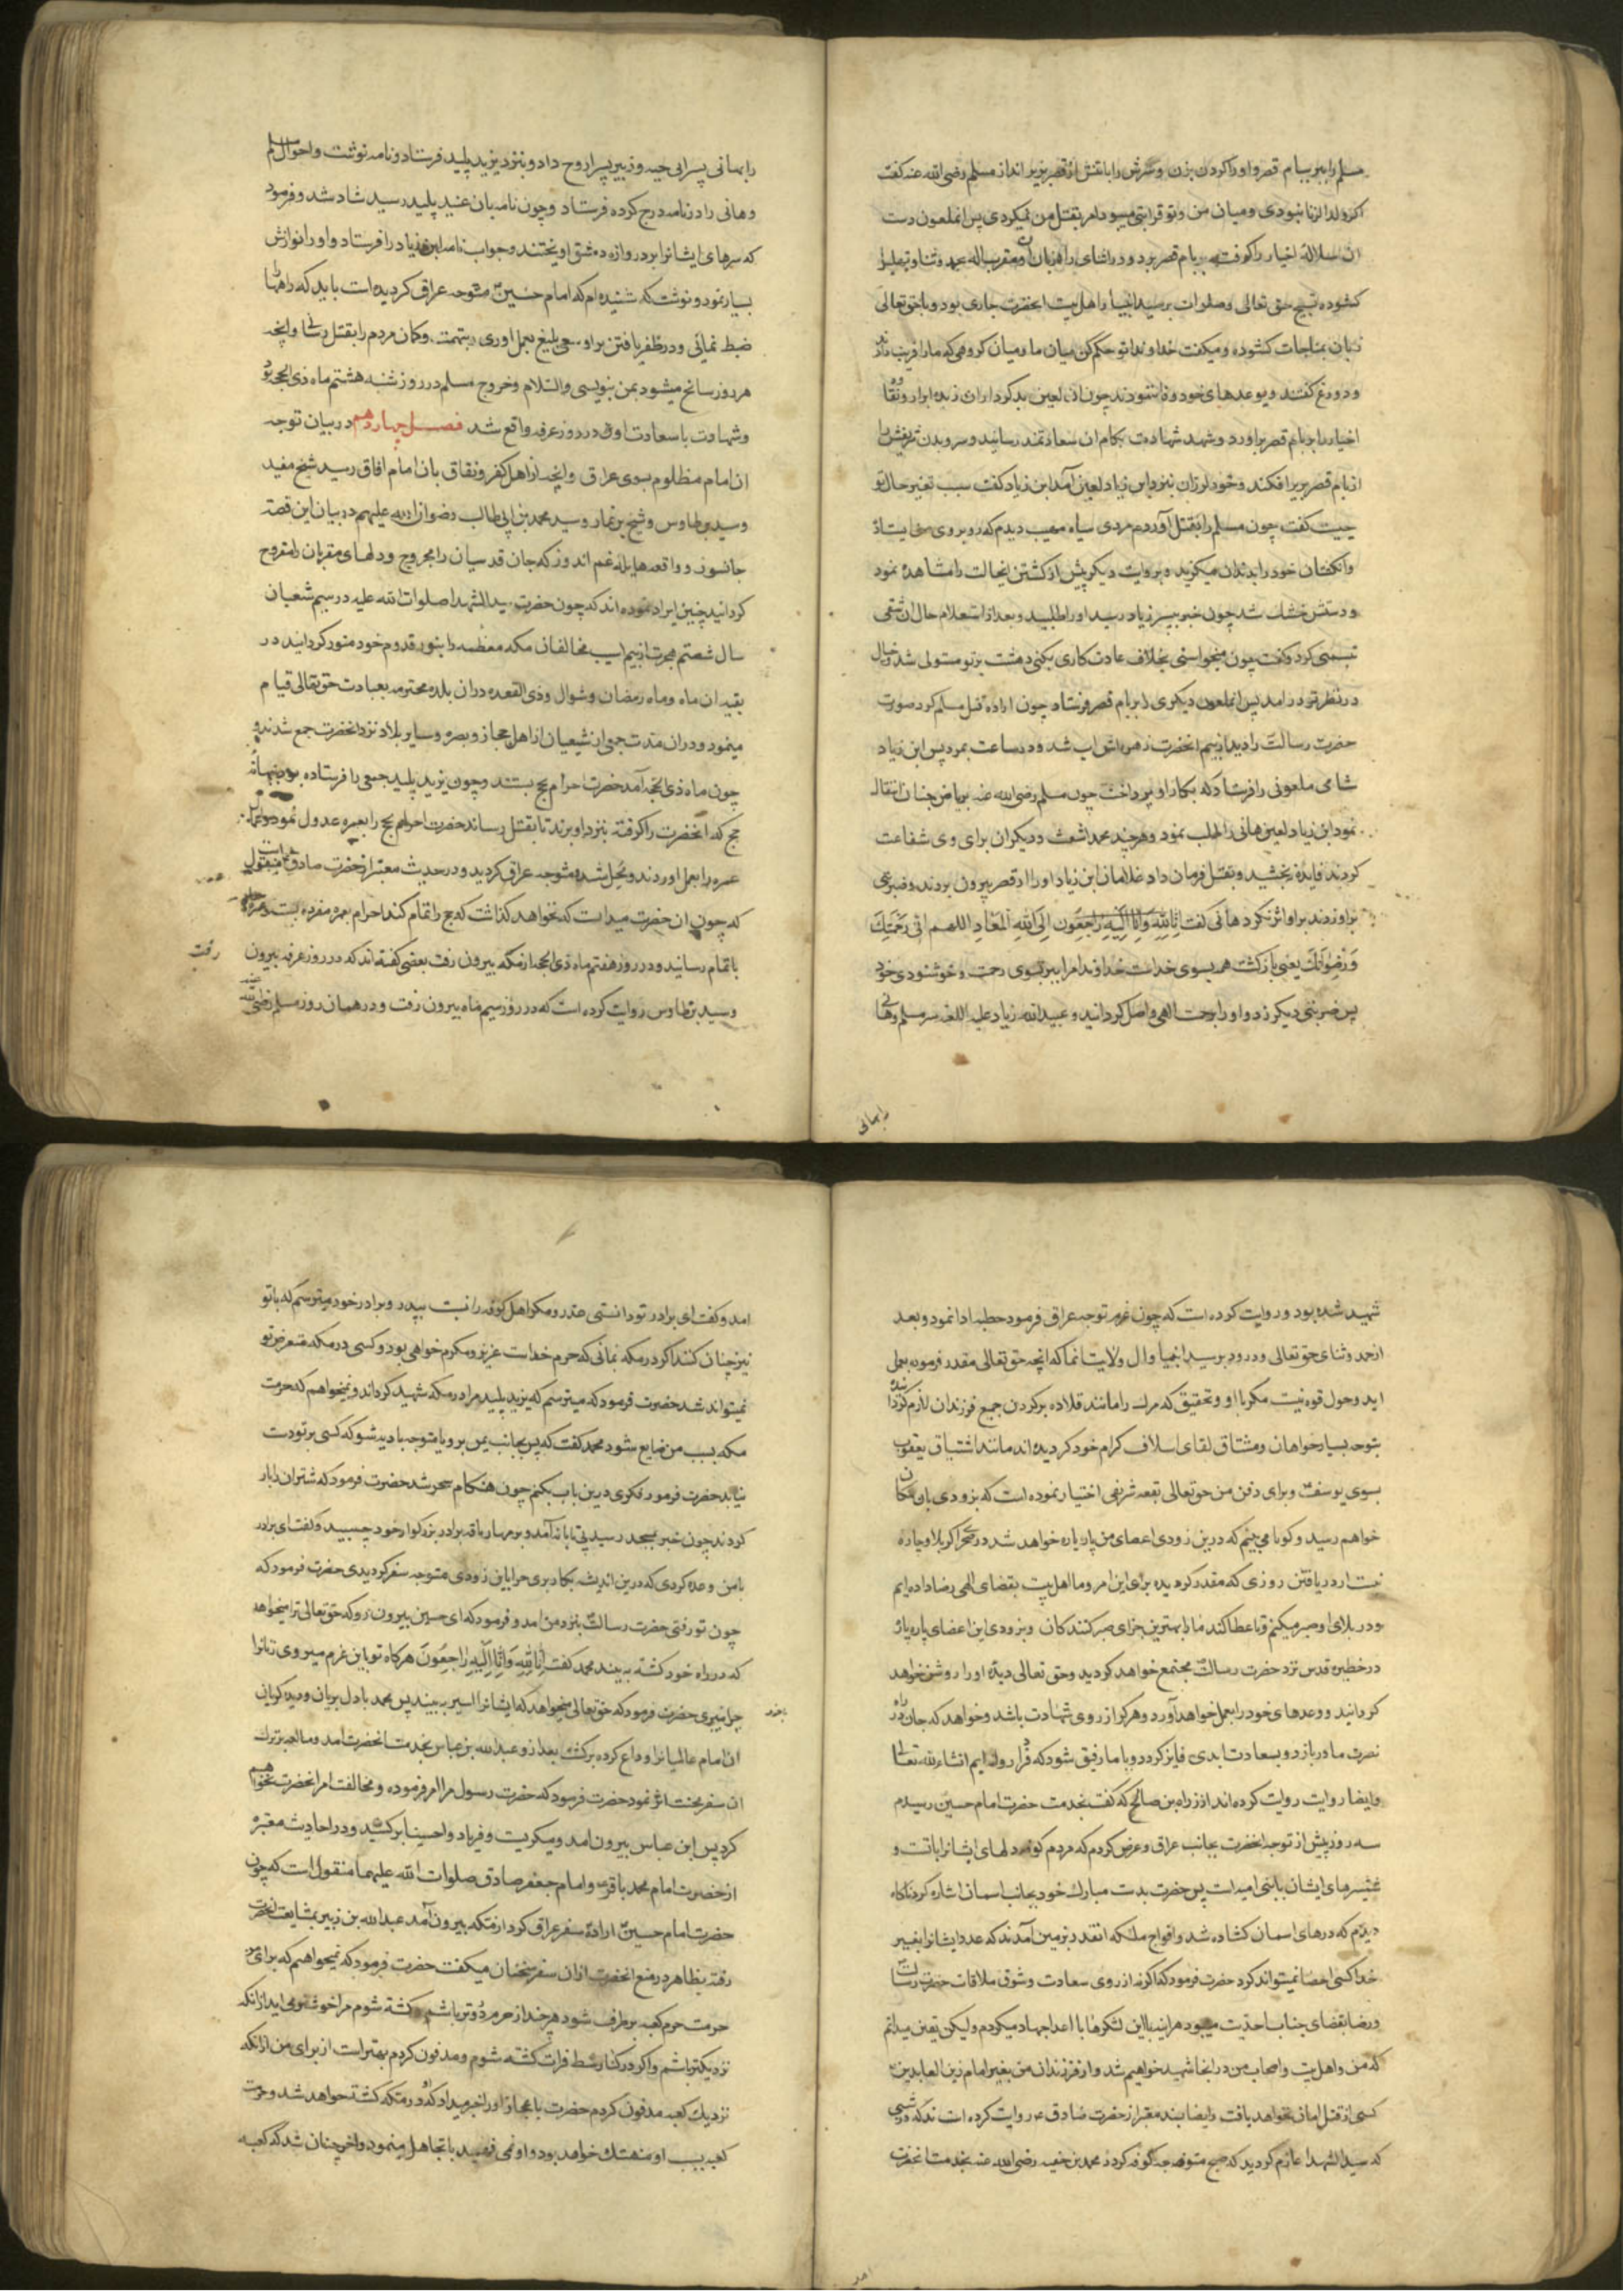 مسلم را ببر ببام قصر و او را کردن بزن و سرش را با تنش از قصر بزیر انداز مسلم رضی الله عنه کفت
اکر ولد الزنا نبودی و میان من و تو قرابتی میبود امر بقتل من نمیکردی پس انملعون دست
ان سلاله اخیار را کرفت ببام قصر برد و در اثنای راه زبان ان مقرب اله بحمد و ثنا و تهلیل
کشوده تسبیح حق تعالی و صلوات بر سید انبیا و اهل بیت انحضرت جاری بود و با حق تعالی
زبان بمناجات کشوده و میکفت خداوندا تو حکم کن میان ما و میان کروهی که ما را فریب دادند
و دروغ کفتند و بوعدهای خود وفا ننمودند چون ان لعین بدکردار ان زبده ابرار و نقاوه
اخیار را بر بام قصر براورد و شهد شهادت بکام ان سعادتمند رسانید و سر و بدن شریفش را
از بام قصر بزیر افکند و خود لرزان بنزد ابن زیاد لعین آمد ابن زیاد کفت سبب تغیر حال تو
چیست کفت چون مسلم را بقتل آوردم مردی سیاه مهیب دیدم که در برابر روی من ایستاده
و انکشتان خود را بدندان میکزید و بروایت دیکر پیش از کشتن اینحالت را مشاهده نمود
و دستش خشک شد چون خبر بپسر زیاد رسید او را طلبید و بعد از استعلام حال ان شقی
تبسمی کرد و کفت چون میخواستی بخلاف عادت کاری بکنی دهشت بر تو مستولی شد و خیال
در نظر تو در امد پس انملعون دیکری را بر بام قصر فرستاد چون اراده قتل مسلم کرد صورت
حضرت رسالت را دید از بیم انحضرت زهره اش اب شد و در ساعت بمرد پس ابن زیاد
شامی ملعونی را فرستاد که بکار او پرداخت چون مسلم رضی الله عنه بریاض جنان انتقال
نمود ابن زیاد لعین هانی را طلب نمود و هر چند محمد اشعث و دیکران برای وی شفاعت
کردند فایده نبخشید و بقتل فرمان داد غلامان ابن زیاد او را از قصر بیرون بردند و ضربتی
بر او زدند بر او اثر نکرد هانی کفت انا لله و انا الیه راجعون الی الله المعاد اللهم الی رحمتک
و رضوانک یعنی بازکشت همه بسوی خداست خداوندا مرا ببر بسوی رحمت و خوشنودی خود
پس ضربتی دیکر زد و او را برحمت الهی واصل کردانید و عبید الله زیاد علیه اللعنه سر مسلم و هانی
را بهانی
را بهانی پسر ابی حیه و زبیر پسر اروح داد و بنزد یزید پلید فرستاد و نامه نوشت و احوال مسلم
و هانی را در نامه درج کرده فرستاد و چون نامه بان عنید پلید رسید شاد شد و فرمود
که سرهای ایشانرا بر دروازه دمشق اویختند و جواب نامه ابن زیاد را فرستاد و او را نوازش
بسیار نمود و نوشت که شنیده ام که امام حسین متوجه عراق کردیده است باید که راهها
ضبط نمائی و در ظفر یافتن بر او سعی بلیغ بعمل اوری و بتهمت و کمان مردم را بقتل رسانی و انچه
هر روز سانح میشود بمن بنویسی والسلام و خروج مسلم در روز شنبه هشتم ماه ذی الحجه بود
و شهادت با سعادت او در روز عرفه واقع شد فصل چهاردهم در بیان توجه
ان امام مظلوم بسوی عراق و انچه از اهل کفر و نفاق بان امام افاق رسید شیخ مفید
و سید بن طاوس و شیخ بن نما و سید محمد بن ابی طالب رضوان الله علیهم در بیان این قصه
جانسوز و واقعه هایله غم اندوز که جان قدسیان را مجروح و دلهای مقربان را مقروح
کردانید چنین ایراد نموده اند که چون حضرت سید الشهدا صلوات الله علیه در سیم شعبان
سال شصتم هجرت از بیم اسیب مخالفان مکه معظمه را بنور قدوم خود منور کردانید در
بقیه ان ماه و ماه رمضان و شوال و ذی القعده در ان بلده محترمه بعبادت حق تعالی قیام
مینمود و در ان مدت جمعی از شیعیان از اهل حجاز و بصره و سایر بلاد نزد انحضرت جمع شدند و
چون ماه ذی الحجه آمد حضرت احرام بحج بستند و چون یزید پلید جمعی را فرستاده بود ببهانه
حج که انحضرت را کرفته بنزد او برند تا بقتل رساند حضرت احرام حج را بعمره عدول نمود و اعمال
عمره را بعمل اوردند و محل شده متوجه عراق کردید و در حدیث معتبر از حضرت صادق منقول است
که چون ان حضرت میدانست که نخواهد کذاشت که حج را تمام کند احرام بعمره مفرده بست و عمره
باتمام رسانید و در روز هفتم ماه ذی الحجه از مکه بیرون رفت بعضی کفته اند که در روز عرفه بیرون رفت
و سید بن طاوس روایت کرده است که در روز سیم ماه بیرون رفت و در همان روز مسلم رضی الله عنه
شهید شده بود و روایت کرده است که چون عزم توجه عراق فرمود خطبه ادا نمود و بعد
از حمد و ثنای حق تعالی و درود بر سید انبیا و ال ولایت انما که انچه حق تعالی مقدر فرموده بعمل
اید و حول قوه نیست مکر با او و تحقیق که مرک را مانند قلاده بر کردن جمیع فرزندان لازم کردانیده
بتوجه بسیار خواهان و مشتاق لقای اسلاف کرام خود کردیده اند مانند اشتیاق یعقوب
بسوی یوسف و برای دفن من حق تعالی بقعه شریفی اختیار نموده است که بزودی بان مکان
خواهم رسید و کویا می بینم که درین زودی اعضای من پاره پاره خواهد شد در صحرا کربلا و چاره
نیست از دریافتن روزی که مقدر کردیده برای این امر و ما اهل بیت بقضای الهی رضا داده ایم
و در بلای او صبر میکنم و تا عطا کند ما را بهترین جزای صبر کنندکان و بزودی این اعضای پاره پاره
در حظیره قدس نزد حضرت رسالت مجتمع خواهد کردید و حق تعالی دیده او را روشن خواهد
کردانید و وعدهای خود را بعمل خواهد آورد و هر که از روی شهادت باشد و خواهد که جان در راه
نصرت ما در بازد و بسعادت ابدی فایز کردد و با ما رفیق شود که فردا روانه ایم انشاء الله تعالی
و ایضا روایت روایت کرده اند از زراره بن صالح که کفت بخدمت حضرت امام حسین رسیدم
سه روز پیش از توجه انحضرت بجانب عراق و عرض کردم که مردم کوفه دلهای ایشانرا با تست و
شمشیرهای ایشان با بنی امیه است پس حضرت بدست مبارک خود بجانب اسمان اشاره کرد ناکاه
دیدم که درهای اسمان کشاده شد و افواج ملئکه انقدر بزمین آمدند که عدد ایشانرا بغیر
خدا کسی احصا نمیتواند کرد حضرت فرمود که اکر نه از روی سعادت و شوق ملاقات حضرت رسالت
و رضا بقضای جناب احدیت میبود هراینه با این لشکرها با اعدا جهاد میکردم ولیکن یقین میدانم
که من و اهل بیت و اصحاب من در انجا شهید خواهیم شد و از فرزندان من بغیر امام زین العابدین
کسی از قتل امان نخواهد یافت و ایضا بسند معتبر از حضرت صادق روایت کرده است ند که در شبی
که سید الشهدا عازم کردید که صبح متوجه کوفه کردد محمد بن حنفیه رضی الله عنه بخدمت انحضرت
امد
امد و کفت ای برادر تو دانستی غدر و مکر اهل کوفه را نسبت بپدر و برادر خود میترسم که با تو
نیز چنان کنند اکر در مکه بمانی که حرم خداست عزیز و مکرم خواهی بود و کسی در مکه متعرض تو
نمیتواند شد حضرت فرمود که میترسم که یزید پلید مرا در مکه شهید کرداند و نمیخواهم که حرمت
مکه بسبب من ضایع شود محمد کفت که پس بجانب یمن برو یا متوجه بادیه شو که کسی بر تو دست
نیابد حضرت فرمود فکری درین باب بکنم چون هنکام سحر شد حضرت فرمود که شتران را بار
کردند چون خبر بمحمد رسید بی تابانه آمد و بر مهار ناقه برادر بزرکوار خود چسبید و کفت ای برادر
با من وعده کردی که درین اندیشه بکار بری چرا باین زودی متوجه سفر کردیدی حضرت فرمود که
چون تو رفتی حضرت رسالت بنزد من امد و فرمود که ای حسین بیرون رو که حق تعالی ترا میخواهد
که در راه خود کشته به بیند محمد کفت انا لله و انا الیه راجعون هرکاه تو باین عزم میروی زنانرا
چرا میبری حضرت فرمود که حق تعالی میخواهد که ایشانرا اسیر به بیند پس محمد با دل بریان و دیده کریان
ان امام عالمیانرا وداع کرده برکشت بعد ازو عبد الله بن عباس بخدمت انحضرت امد و مبالغه بترک
ان سفر بحث اثر نمود حضرت فرمود که حضرت رسول مرا امر فرموده و مخالفت امر انحضرت نخواهم
کرد پس ابن عباس بیرون امد و میکریست و فریاد واحسینا برکشید و در احادیث معتبره
از حضرت امام محمد باقر و امام جعفر صادق صلوات الله علیهما منقول است که چون
حضرت امام حسین اراده سفر عراق کرد از مکه بیرون آمد عبد الله بن زبیر بمشایعت انحضرت
رفته بظاهر در منع انحضرت ازان سفر سخنان میکفت حضرت فرمود که نمیخواهم که برای من
حرمت حرم کعبه برطرف شود هرچند از حرم دورتر باشم و کشته شوم مرا خوشتر می اید از انکه
نزدیکتر باشم و اکر در کنار شط فرات کشته شوم و مدفون کردم بهتر است از برای من از انکه
نزدیک کعبه مدفون کردم حضرت باعجاز او را خبر میداد که او در مکه کشته خواهد شد و حرمت
کعبه بسبب او منهتک خواهد بود و او نمی فهمید یا تجاهل مینمود و اخر چنان شد که کعبه